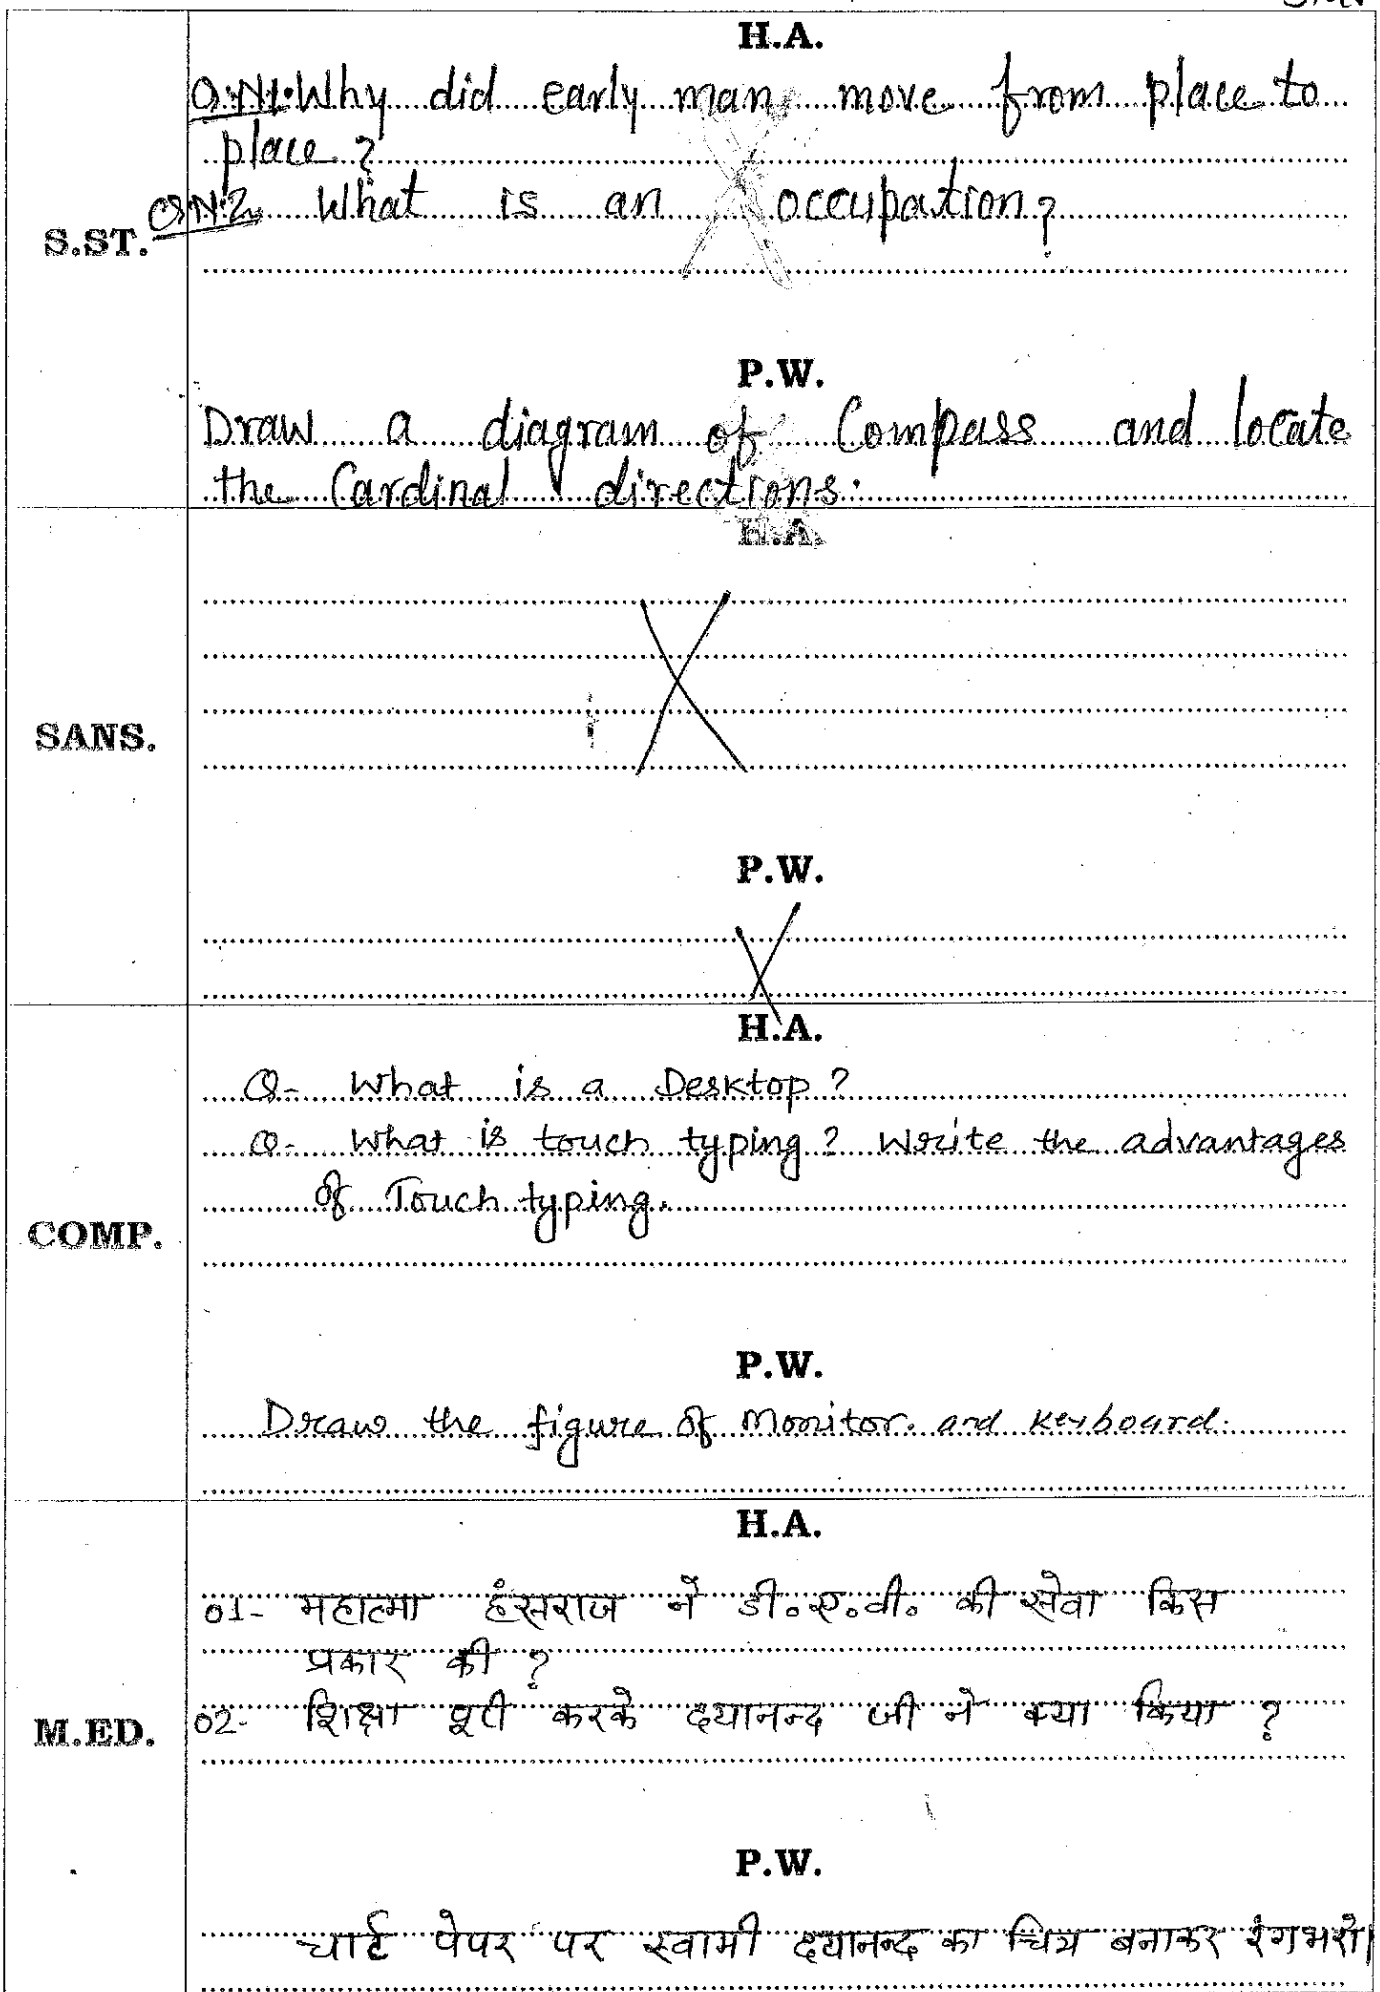 H.A.
Q.N1. Why did early man move from place to
place?
Q.N.2. What is an occupation?
S.ST.
P.W.
Draw a diagram of Compass and locate
the Cardinal directions.
H.A.
SANS.
P.W.
H.A.
Q- What is a Desktop?
Q- What is touch typing? Write the advantages
of Touch typing.
COMP.
P.W.
Draw the figure of Monitor. and Keyboard.
H.A.
01- महात्मा हंसराज ने डी.ए.वी. की सेवा किस
प्रकार की ?
02- शिक्षा पूरी करके दयानन्द जी ने क्या किया ?
M.ED.
P.W.
चार्ट पेपर पर स्वामी दयानन्द का चित्र बनाकर रंगभरो।